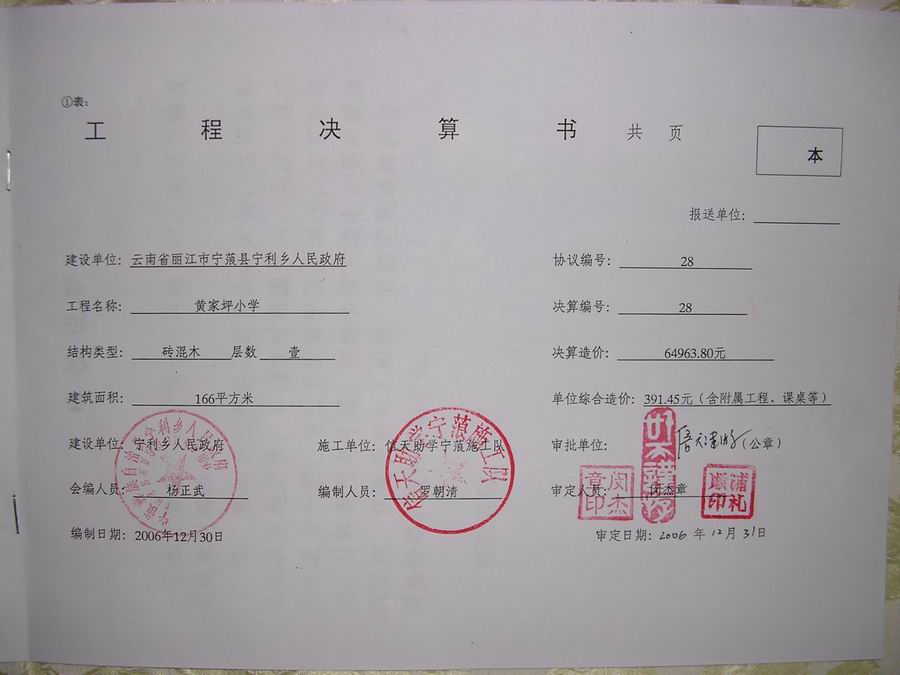 ①表:
工 程 决 算 书 共 页
本
报送单位:
建设单位: 云南省丽江市宁蒗县宁利乡人民政府 协议编号: 28
工程名称: 黄家坪小学 决算编号: 28
结构类型: 砖混木 层数 壹 决算造价: 64963.80元
建筑面积: 166平方米 单位综合造价: 391.45元(含附属工程、课桌等)
建设单位: 宁利乡人民政府 施工单位: 信天助学宁蒗施工队 审批单位: (公章)
会编人员: 杨正武 编制人员: 罗朝清 审定人员: 闵杰章
编制日期: 2006年12月30日 审定日期: 2006 年 12月 31日
信天助学宁蒗施工队
闵杰章印